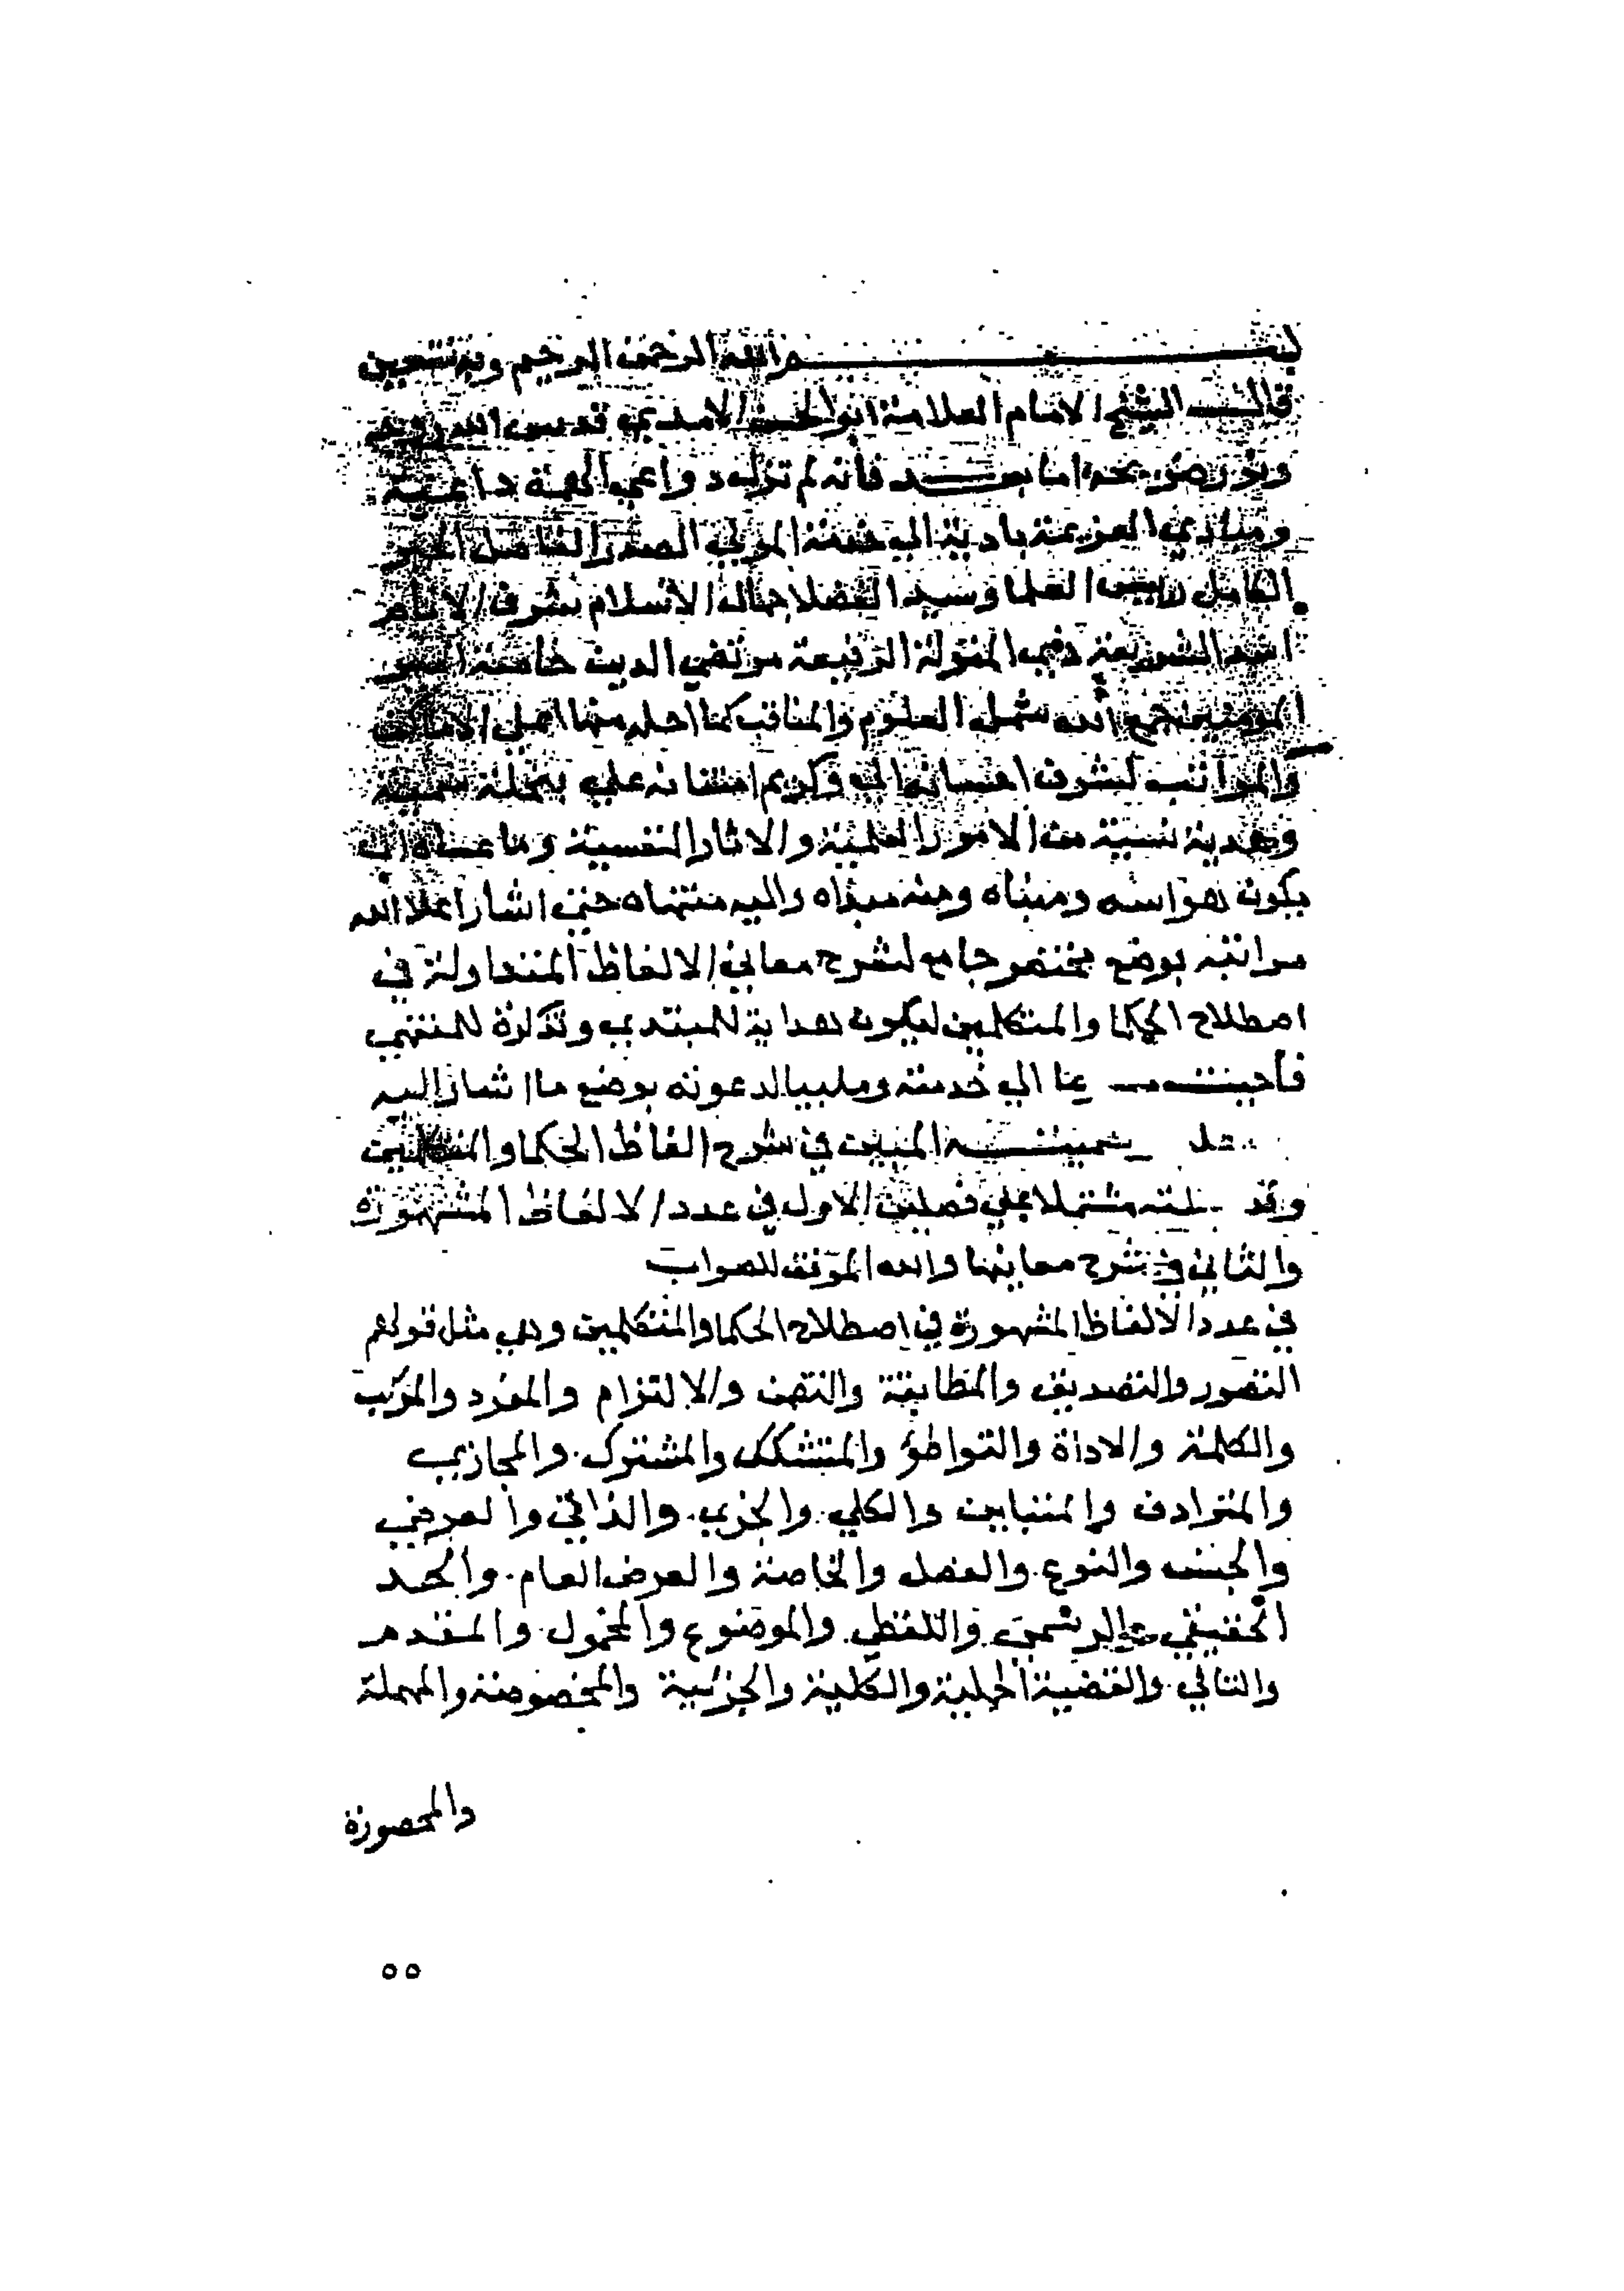 بسم الله الرحمن الرحيم وبه نستعين
قال الشيخ الامام العلامة ابو الحسن الامدي قدس الله روحه
ونور ضريحه اما بعد فانه لم تزل دواعي الهمة داعية
ومبادي العزيمة بادية الي خدمة المولي الصدر الفاضل الحبر
الكامل رييس العلما وسيد الفضلا جمال الاسلام شرف الانام
الشريعة ذي المنزلة الرفيعة مرتضي الدين خاصة امير
المومنين جمع الله شمل العلوم والمناقب كما احله منها اعلي الاماكن
والمراتب لشرف احسانه الي وكريم امتنانه علي بتحفة سمية
وهدية نسبية من الامور العلمية والاثار النفسية وما عساه ان
يكون هو اسه ومبناه ومنه مبداه واليه منتهاه حتي اشار اعلا الله
مراتبه بوضع مختصر جامع لشرح معاني الالفاظ المتداولة في
اصطلاح الحكما والمتكلمين ليكون هداية للمبتدي وتذكرة للمنتهي
فأجبته الي خدمته ومليبا لدعوته بوضع ما اشار اليه
سميته المبين في شرح الفاظ الحكما والمتكلمين
وقد مشتملا علي فصلين الاول في عدد الالفاظ المشهورة
والثاني في شرح معانيها والله الموفق للصواب
في عدد الالفاظ المشهورة في اصطلاح الحكما والمتكلمين وهي مثل قولهم
التصور والتصديق والمطابقة والتضمن والالتزام والمفرد والمركب
والكلمة والاداة والتواطؤ والمتشكك والمشترك. والمجازي
والمترادف والمتباين والكلي. والجزي. والذاتي والعرضي
والجنس والنوع. والفصل والخاصة والعرض العام. والحد
الحقيقي والرسمي. واللفظي. والموضوع والمحمول. والمقدم
والتالي. والقضية الحملية والكلية والجزئية والمخصوصة والمهملة
والمحصورة
٥٥